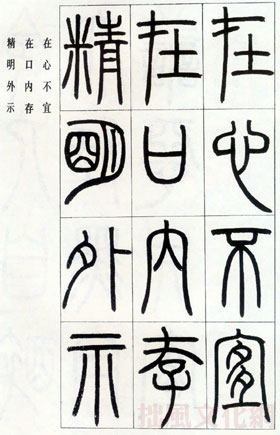 在心不宜
在口内存
精明外示
在心不宜
在口内存
精明外示
拙風文化網